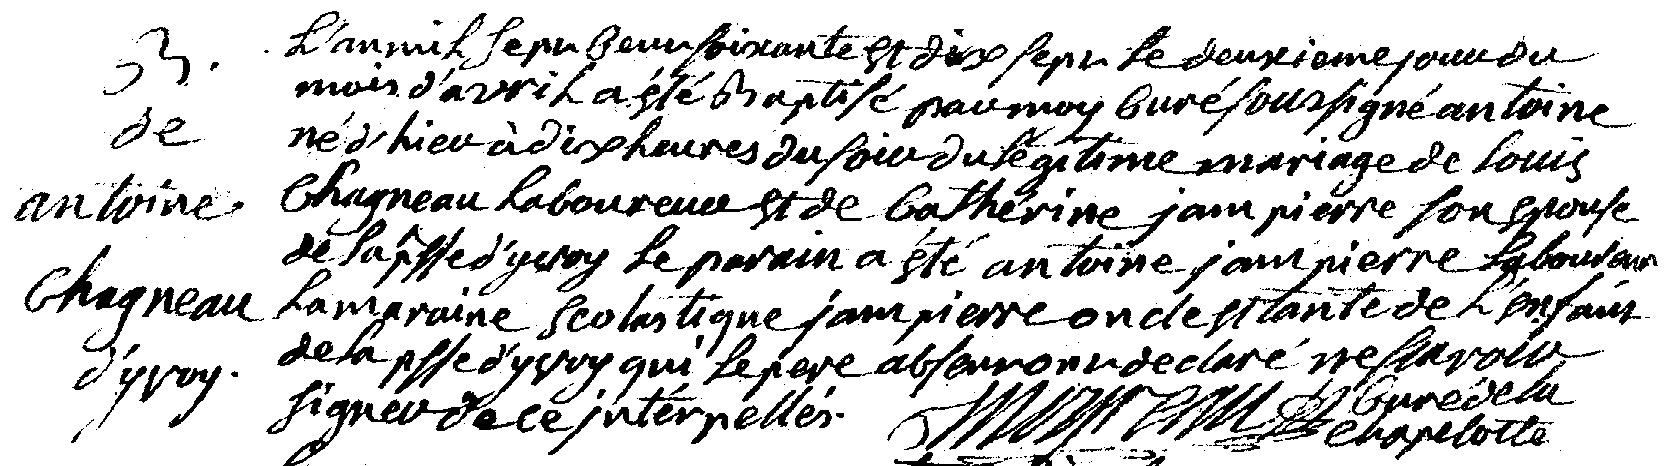 B.
de
antoine
Chagneau
d'yvoy.
L'an mil sept Cent soixante et dix sept le deuxieme jour du
mois d'avril a été Baptisé par moy Curé soussigné antoine
né d'hier à dix heures du soir du légitime mariage de louis
Chagneau laboureur et de Catherine jampierre son epouse
de la psse d'yvoy le parain a été antoine jampierre laboureur
la maraine scolastique jampierre oncle et tante de l'enfant
de la psse d'yvoy qui le pere absent ont declaré ne sçavoir
signer de ce jnterpellés.
Curé de la
chapelotte